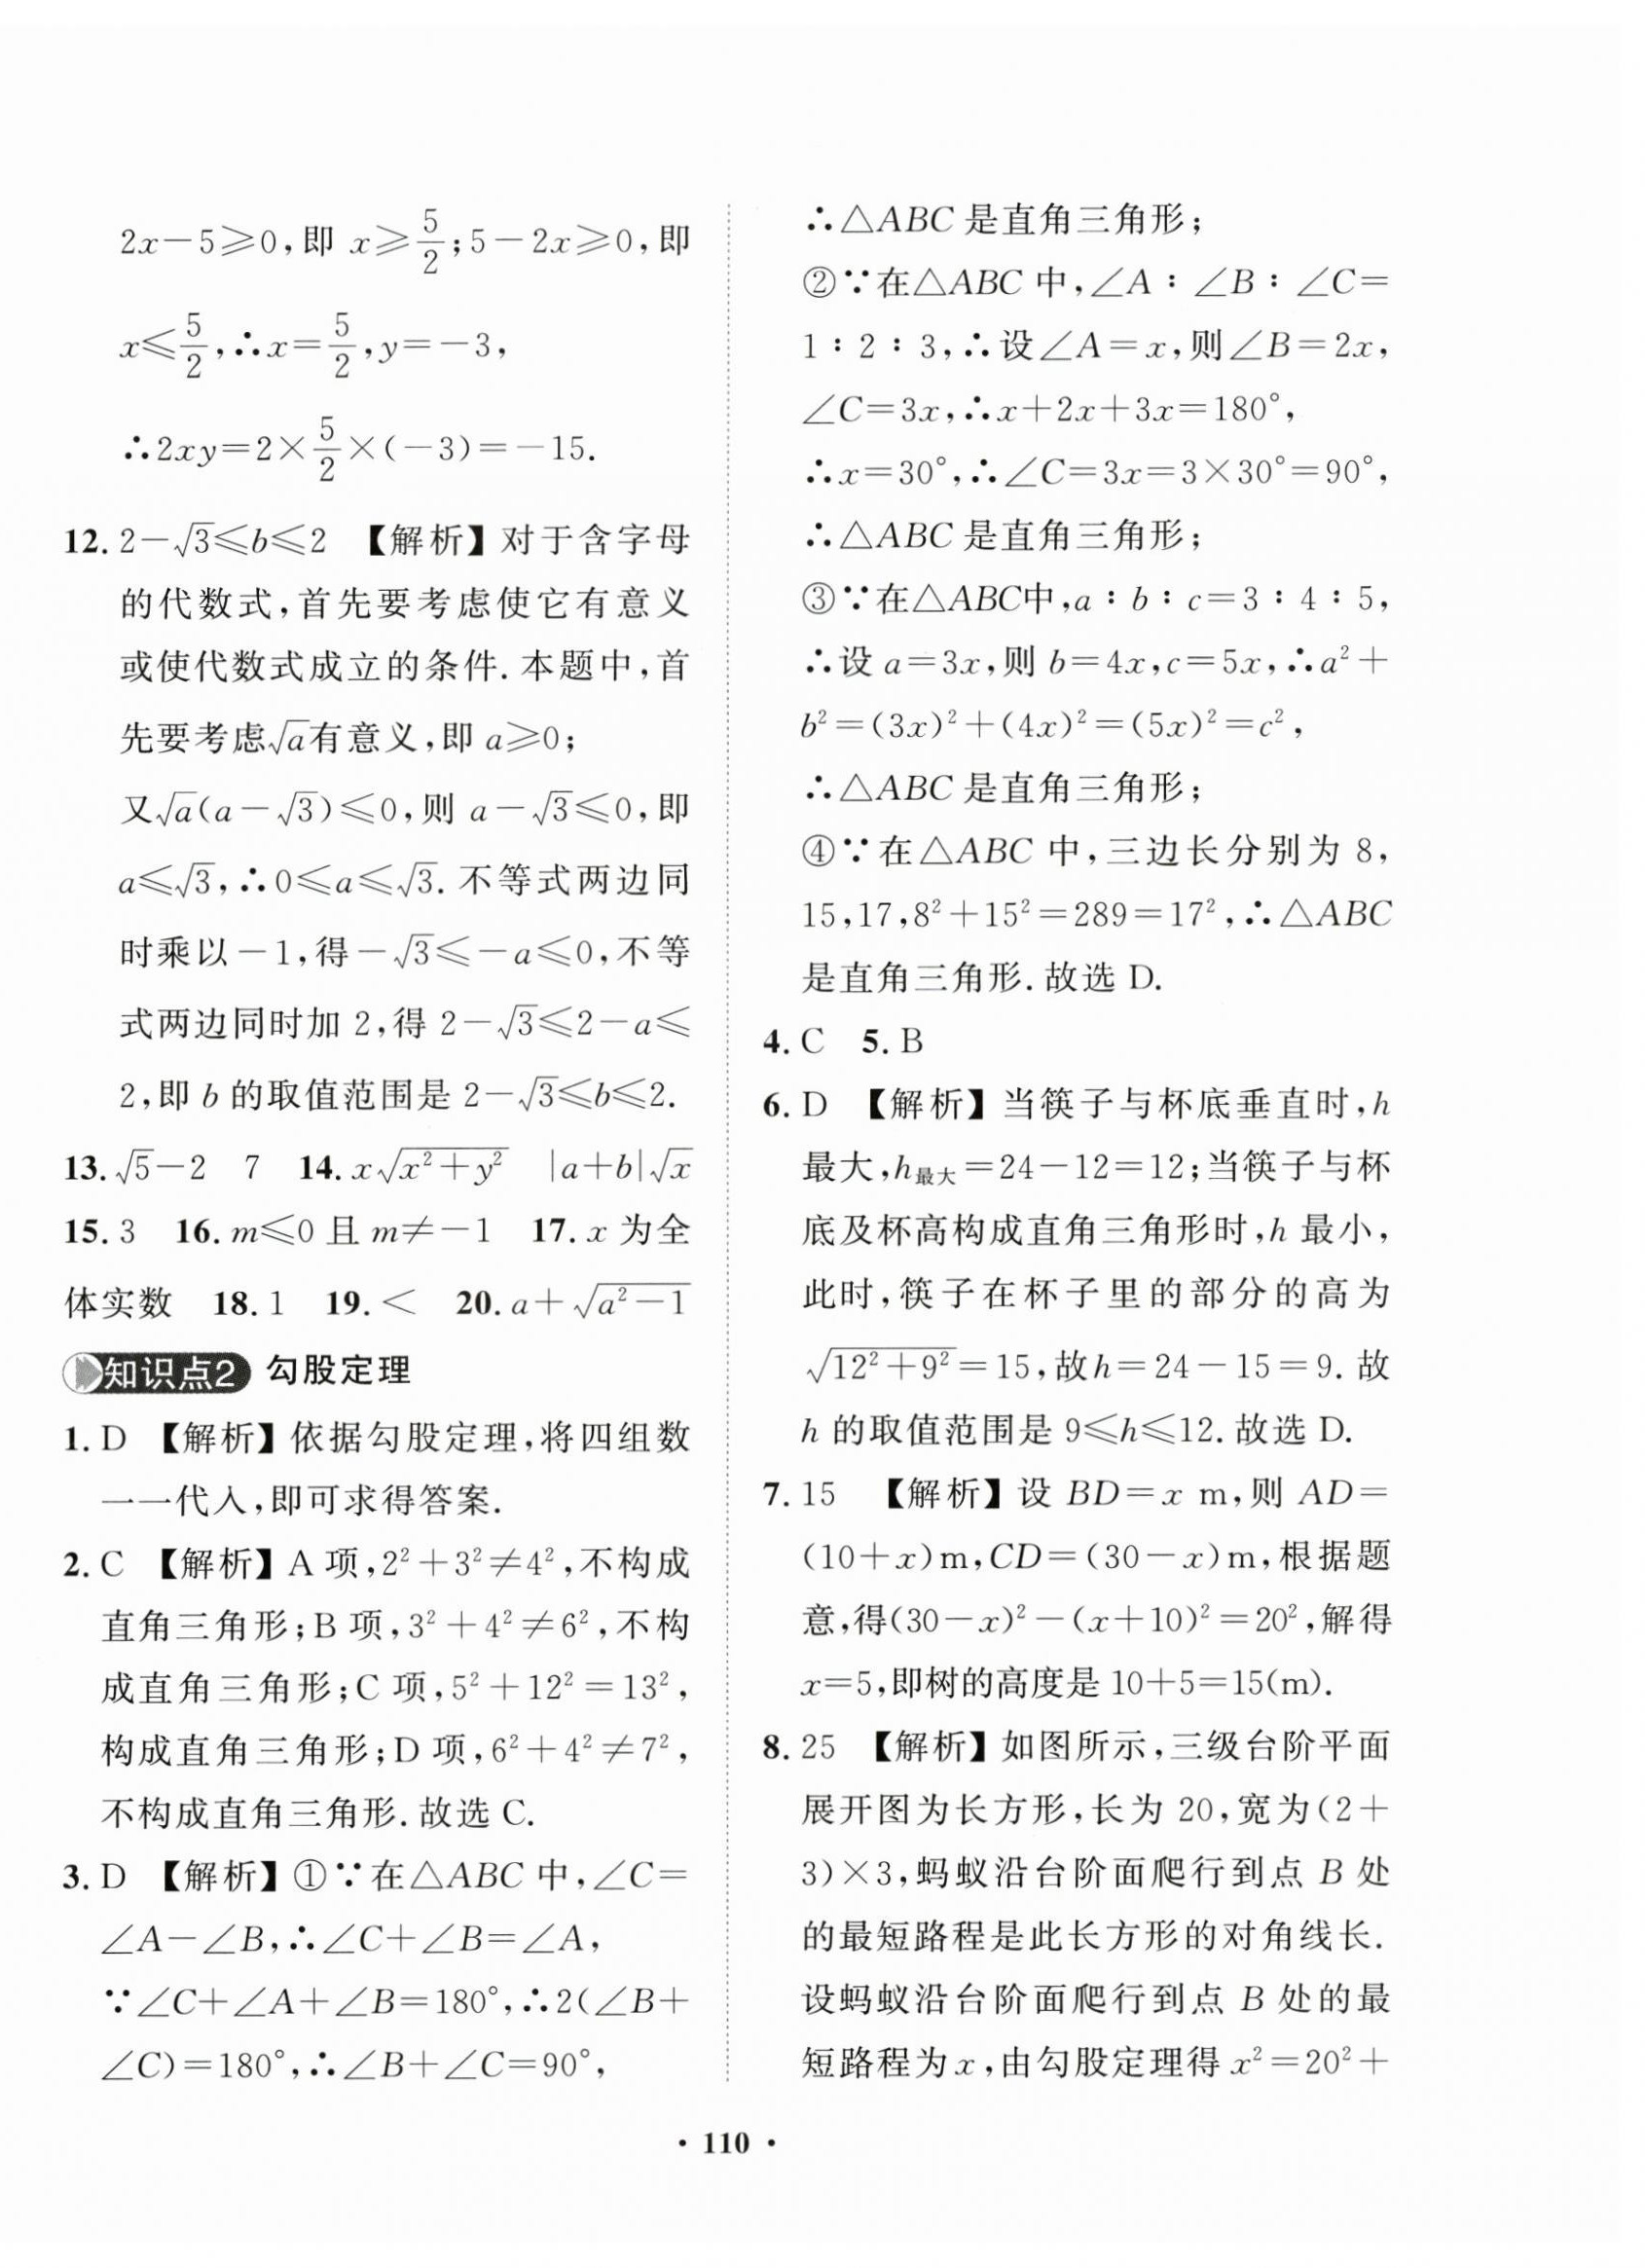 2x-5≥0,即 x≥5/2;5-2x≥0,即
x≤5/2,∴x=5/2,y=-3,
∴2xy=2×5/2×(-3)=-15.
12. 2-√3≤b≤2 【解析】对于含字母
的代数式,首先要考虑使它有意义
或使代数式成立的条件.本题中,首
先要考虑√a有意义,即 a≥0;
又√a(a-√3)≤0,则 a-√3≤0,即
a≤√3,∴0≤a≤√3.不等式两边同
时乘以-1,得-√3≤-a≤0,不等
式两边同时加 2,得 2-√3≤2-a≤
2,即 b 的取值范围是 2-√3≤b≤2.
13. √5-2 7 14. x√(x²+y²) |a+b|√x
15. 3 16. m≤0 且 m≠-1 17. x 为全
体实数 18. 1 19. < 20. a+√(a²-1)
知识点2 勾股定理
1. D 【解析】依据勾股定理,将四组数
一一代入,即可求得答案.
2. C 【解析】A 项,2²+3²≠4²,不构成
直角三角形;B 项,3²+4²≠6²,不构
成直角三角形;C 项,5²+12²=13²,
构成直角三角形;D 项,6²+4²≠7²,
不构成直角三角形.故选 C.
3. D 【解析】①∵在△ABC 中,∠C=
∠A-∠B,∴∠C+∠B=∠A,
∵∠C+∠A+∠B=180°,∴2(∠B+
∠C)=180°,∴∠B+∠C=90°,
∴△ABC 是直角三角形;
②∵在△ABC 中,∠A∶∠B∶∠C=
1∶2∶3,∴设∠A=x,则∠B=2x,
∠C=3x,∴x+2x+3x=180°,
∴x=30°,∴∠C=3x=3×30°=90°,
∴△ABC 是直角三角形;
③∵在△ABC中,a∶b∶c=3∶4∶5,
∴设 a=3x,则 b=4x,c=5x,∴a²+
b²=(3x)²+(4x)²=(5x)²=c²,
∴△ABC 是直角三角形;
④∵在△ABC 中,三边长分别为 8,
15,17,8²+15²=289=17²,∴△ABC
是直角三角形.故选 D.
4. C 5. B
6. D 【解析】当筷子与杯底垂直时,h
最大,h最大=24-12=12;当筷子与杯
底及杯高构成直角三角形时,h 最小,
此时,筷子在杯子里的部分的高为
√(12²+9²)=15,故h=24-15=9.故
h 的取值范围是 9≤h≤12.故选 D.
7. 15 【解析】设 BD=x m,则 AD=
(10+x)m,CD=(30-x)m,根据题
意,得(30-x)²-(x+10)²=20²,解得
x=5,即树的高度是 10+5=15(m).
8. 25 【解析】如图所示,三级台阶平面
展开图为长方形,长为 20,宽为(2+
3)×3,蚂蚁沿台阶面爬行到点 B 处
的最短路程是此长方形的对角线长.
设蚂蚁沿台阶面爬行到点 B 处的最
短路程为 x,由勾股定理得 x²=20²+
· 110 ·